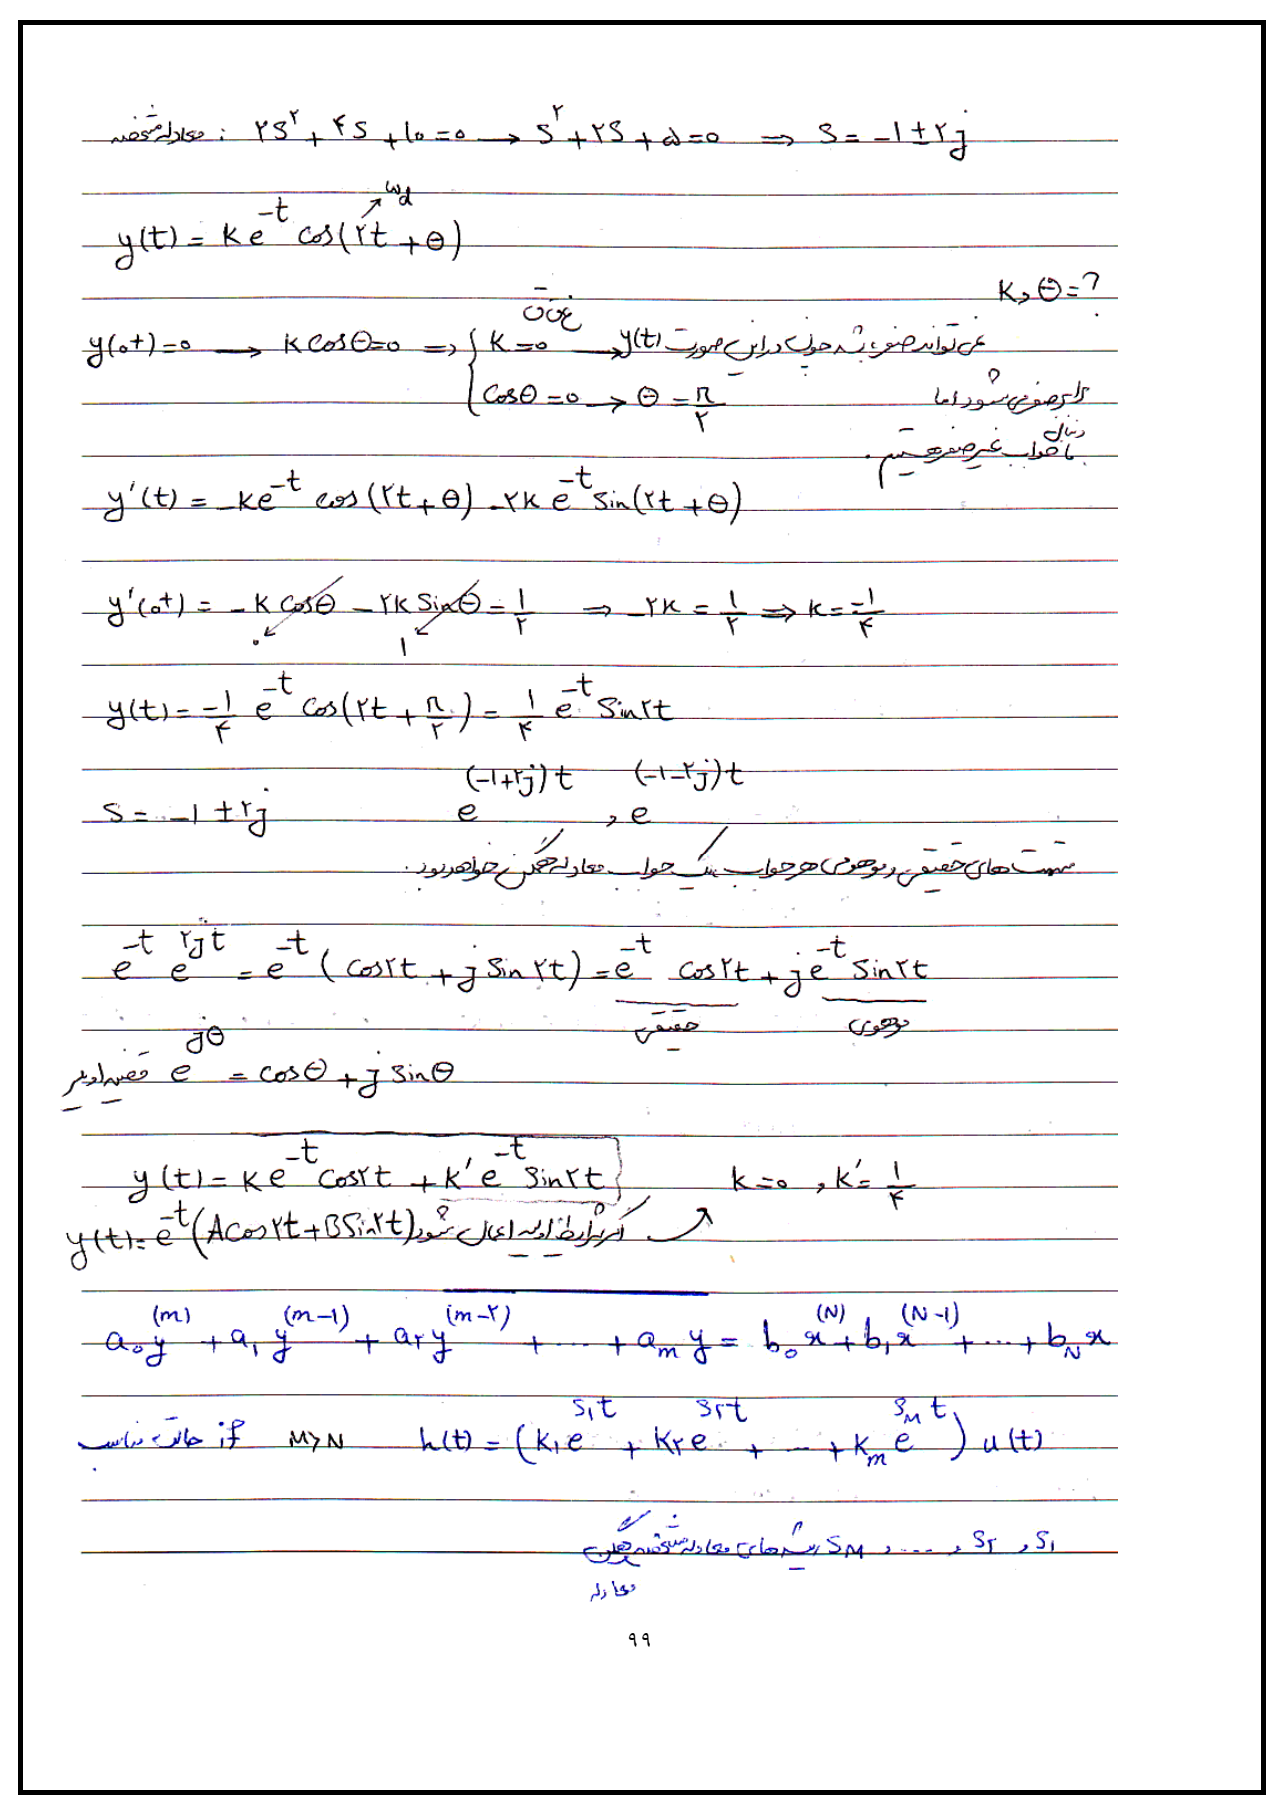 معادله مشخصه : ۲S^۲ + ۴S + ۱۰ = ۰ → S^۲ + ۲S + ۵ = ۰ ⇒ S = -۱ ± ۲j
y(t) = k e^-t cos(۲t + θ) ↗ ωd
k, θ = ?
y(۰+) = ۰ → k cosθ = ۰ ⇒ { k = ۰ غ ق ق → نمی تواند صفر باشد چون در این صورت y(t)
cosθ = ۰ → θ = π/۲ صفر می شود اما
ما دنبال جواب غیر صفر هستیم.
y'(t) = -ke^-t cos(۲t + θ) - ۲k e^-t sin(۲t + θ)
y'(۰+) = -k cosθ - ۲k sinθ = ۱/۲ ⇒ -۲k = ۱/۲ ⇒ k = -۱/۴
۰ ۱
y(t) = -۱/۴ e^-t cos(۲t + π/۲) = ۱/۴ e^-t sin۲t
S = -۱ ± ۲j e^(-۱+۲j)t , e^(-۱-۲j)t
قسمت های حقیقی و موهومی هر جواب یک جواب معادله همگن خواهد بود.
e^-t e^۲jt = e^-t (cos۲t + j sin۲t) = e^-t cos۲t + j e^-t sin۲t
حقیقی موهومی
قضیه اویلر e^jθ = cosθ + j sinθ
y(t) = k e^-t cos۲t + k' e^-t sin۲t k = ۰ , k' = ۱/۴
y(t) = e^-t (A cos۲t + B sin۲t) اگر شرایط اولیه اعمال شود
a₀y^(m) + a₁y^(m-۱) + a₂y^(m-۲) + ... + a_m y = b₀x^(N) + b₁x^(N-۱) + ... + b_N x
حالت مناسب if M>N h(t) = (k₁e^S₁t + k₂e^S₂t + ... + k_m e^S_M t) u(t)
S₁ , S₂ , .... , S_M ریشه های معادله مشخصه همگن
معادله
۹۹